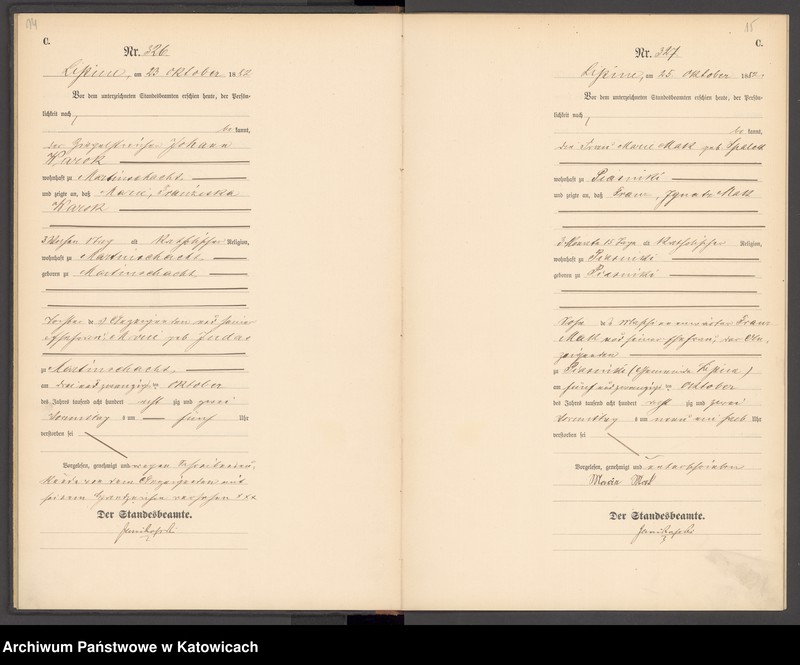 C.
Nr. 326
Lipine, am 23. Oktober 1882
Vor dem unterzeichneten Standesbeamten erschien heute, der Persön-
lichkeit nach
be kannt,
der Johann
wohnhaft zu Martinschacht
und zeigte an, daß Marie, Franziska
3 Wochen alt, Katholischer Religion,
wohnhaft zu Martinschacht
geboren zu Martinschacht
Tochter des Anzeigenden und seiner
Ehefrau, Marie geb. Judas
zu Martinschacht
am drei und zwanzigsten Oktober
des Jahres tausend acht hundert acht zig und zwei
Vormittag s um fünf Uhr
verstorben sei
Vorgelesen, genehmigt und wegen
von dem Anzeigenden mit
seinem Handzeichen versehen xxx
Der Standesbeamte.
15
C.
Nr. 327
Lipine, am 25. Oktober 1882
Vor dem unterzeichneten Standesbeamten erschien heute, der Persön-
lichkeit nach
be kannt,
die Frau Marie geb.
wohnhaft zu Piasniki
und zeigte an, daß Franz, Ignatz
Monate 15 Tage alt, Katholischer Religion,
wohnhaft zu Piasniki
geboren zu Piasniki
Sohn des Franz
und seiner Ehefrau, der An-
zeigenden
zu Piasniki (Gemeinde Lipine)
am fünf und zwanzigsten Oktober
des Jahres tausend acht hundert acht zig und zwei
Vormittag s um neun ein halb Uhr
verstorben sei
Vorgelesen, genehmigt und unterschrieben
Der Standesbeamte.
Archiwum Państwowe w Katowicach